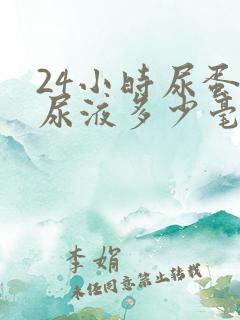 24小時尿蛋
尿液多少毫
李娟
未经同意禁止转载